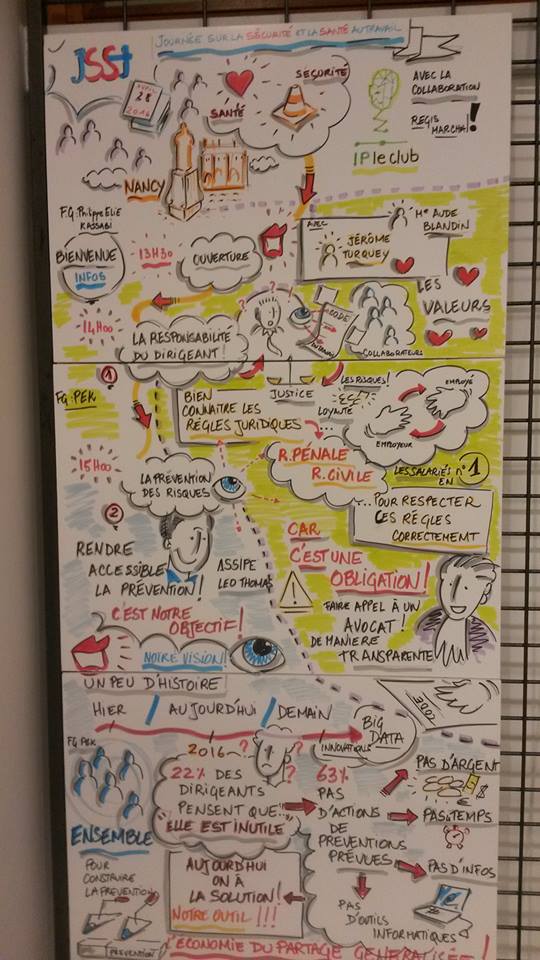 JSSt
JOURNÉE SUR LA SÉCURITÉ ET LA SANTÉ AU TRAVAIL
AVRIL
28
2016
SANTÉ
SÉCURITÉ
AVEC LA
COLLABORATION
REGIS
MARCHAL!
IP le club
NANCY
F.G. Philippe Elie
KASSABI
BIENVENUE
INFOS
13H30
OUVERTURE
AVEC
JÉRÔME
TURQUEY
Me AUDE
BLANDIN
LES
VALEURS
14H00
LA RESPONSABILITÉ
DU DIRIGEANT!
? ? ?
CODE
DU TRAVAIL
COLLABORATEURS
1
FG.PEK
BIEN
CONNAITRE LES
RÉGLES JURIDIQUES
JUSTICE
LES RISQUES!
LOYAUTÉ
EMPLOYÉ
EMPLOYEUR
15H00
LA PRÉVENTION
DES RISQUES
R.PÉNALE
R.CIVILE
LES SALARIÉS EN n°1
...POUR RESPECTER
CES RÉGLES
CORRECTEMEMT
2
RENDRE
ACCESSIBLE
LA PRÉVENTION!
ASSIPE
LEO THOMAS
C'EST NOTRE
OBJECTIF!
NOTRE VISION!
CAR
C'EST UNE
OBLIGATION!
FAIRE APPEL À UN
AVOCAT!
DE MANIERE
TRANSPARENTE
UN PEU D'HISTOIRE
HIER / AUJOURD'HUI / DEMAIN
INNOVATIONS
BIG
DATA
CODE
FG PEK
2016
? ? ?
22% DES
DIRIGEANTS
PENSENT QUE...
"ELLE EST INUTILE"
63%
PAS
D'ACTIONS
DE
PREVENTIONS
PRÉVUES
PAS D'ARGENT
$
PAS D'TEMPS
PAS D'INFOS
PAS
D'OUTILS
INFORMATIQUES
ENSEMBLE
POUR
CONSTRUIRE
LA PREVENTION
PREVENTION
AUJOURD'HUI
ON À
LA SOLUTION!
NOTRE OUTIL!!!
L'ÉCONOMIE DU PARTAGE GENERALISÉE!